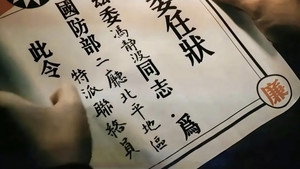 委任狀
茲委馮靜波同志·為
國防部二廳北平地區
特派聯絡員
此令
廉